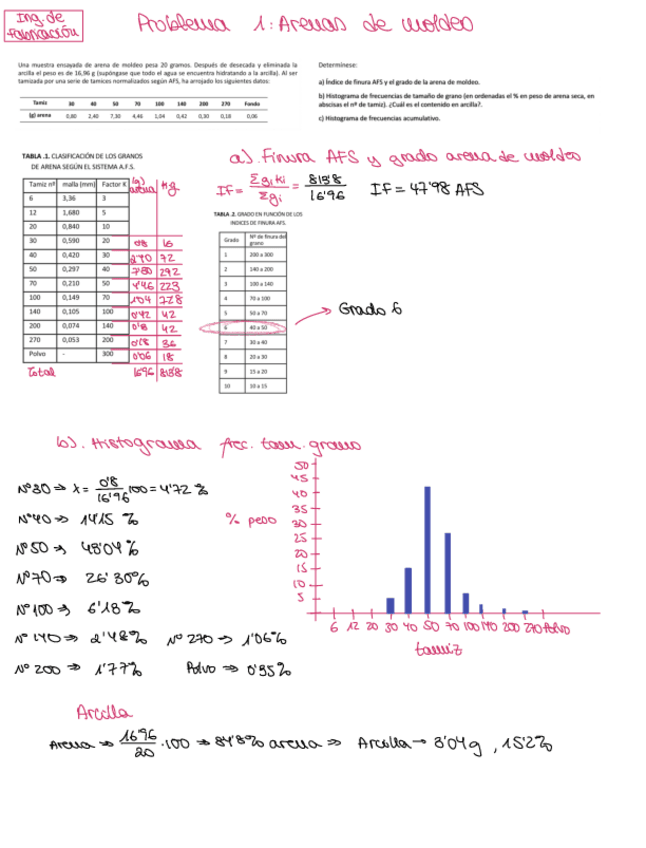 Ing. de
Fabricación
Problema 1: Arenas de moldeo
Una muestra ensayada de arena de moldeo pesa 20 gramos. Después de desecada y eliminada la
arcilla el peso es de 16,96 g (supóngase que todo el agua se encuentra hidratando a la arcilla). Al ser
tamizada por una serie de tamices normalizados según AFS, ha arrojado los siguientes datos:
Tamiz 30 40 50 70 100 140 200 270 Fondo
(g) arena 0,80 2,40 7,30 4,46 1,04 0,42 0,30 0,18 0,06
Determínese:
a) Índice de finura AFS y el grado de la arena de moldeo.
b) Histograma de frecuencias de tamaño de grano (en ordenadas el % en peso de arena seca, en
abscisas el nº de tamiz). ¿Cuál es el contenido en arcilla?.
c) Histograma de frecuencias acumulativo.
TABLA .1. CLASIFICACIÓN DE LOS GRANOS
DE ARENA SEGÚN EL SISTEMA A.F.S.
Tamiz nº malla (mm) Factor K (g) arena K·g
6 3,36 3
12 1,680 5
20 0,840 10
30 0,590 20 0'8 16
40 0,420 30 72
50 0,297 40 292
70 0,210 50 4'46 223
100 0,149 70 1'04
140 0,105 100 0'42 42
200 0,074 140 42
270 0,053 200 0'18 36
Polvo - 300 0'06 18
Total 16'96 8138
a). Finura AFS y grado arena de moldeo
IF = Σgi ki / Σgi = 813'8 / 16'96 IF = 47'98 AFS
TABLA .2. GRADO EN FUNCIÓN DE LOS
INDICES DE FINURA AFS.
Grado Nº de finura del grano
1 200 a 300
2 140 a 200
3 100 a 140
4 70 a 100
5 50 a 70
6 40 a 50
7 30 a 40
8 20 a 30
9 15 a 20
10 10 a 15
Grado 6
b). Histograma frec. tam. grano
Nº30 ⇒ x = 0'8 / 16'96 · 100 = 4'72 %
Nº40 ⇒ 14'15 %
Nº50 ⇒ 43'04 %
Nº70 ⇒ 26'30%
Nº100 ⇒ 6'13 %
Nº140 ⇒ 2'48% Nº270 ⇒ 1'06%
Nº200 ⇒ 1'77% Polvo ⇒ 0'35%
% peso
50
45
40
35
30
25
20
15
10
5
6 12 20 30 40 50 70 100 140 200 270 Polvo
tamiz
Arcilla
Arena ⇒ 16'96 / 20 · 100 ⇒ 84'8% arena ⇒ Arcilla → 3'04g, 15'2%